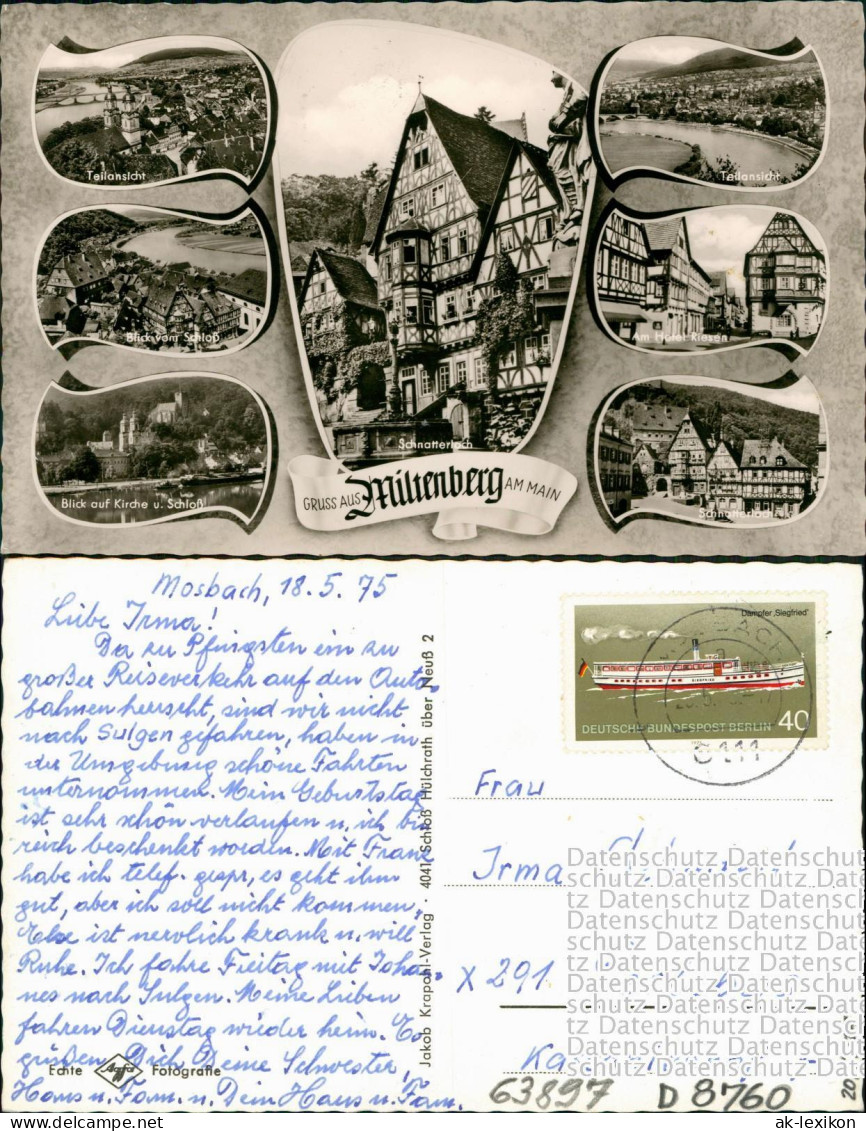 Teilansicht
Teilansicht
Blick vom Schloß
Am Hotel Riesen
Schnatterloch
Blick auf Kirche u. Schloß
Schnatterloch
GRUSS AUS Miltenberg AM MAIN
Mosbach, 18.5.75
Liebe Irma!
Da zu Pfingsten ein zu
großer Reiseverkehr auf den Auto-
bahnen herrscht, sind wir nicht
nach Sulgen gefahren, haben in
der Umgebung schöne Fahrten
unternommen. Mein Geburtstag
ist sehr schön verlaufen u. ich bin
reich beschenkt worden. Mit Franz
habe ich telef. gespr, es geht ihm
gut, aber ich soll nicht kommen,
Else ist nervlich krank u. will
Ruhe. Ich fahre Freitag mit Johan-
nes nach Sulgen. Meine Lieben
fahren Dienstag wieder heim. Es
grüßen Dich Deine Schwester,
Hans u. Fam. u. Dein Hans u. Fam.
Echte Agfa Fotografie
Jakob Krapohl-Verlag · 4041 Schloß Hülchrath über Neuß 2
Dampfer „Siegfried“
SIEGFRIED
DEUTSCHE BUNDESPOST BERLIN 40
Frau
Irma
x 291
Datenschutz Datenschutz
63897 D 8760
ak-lexikon